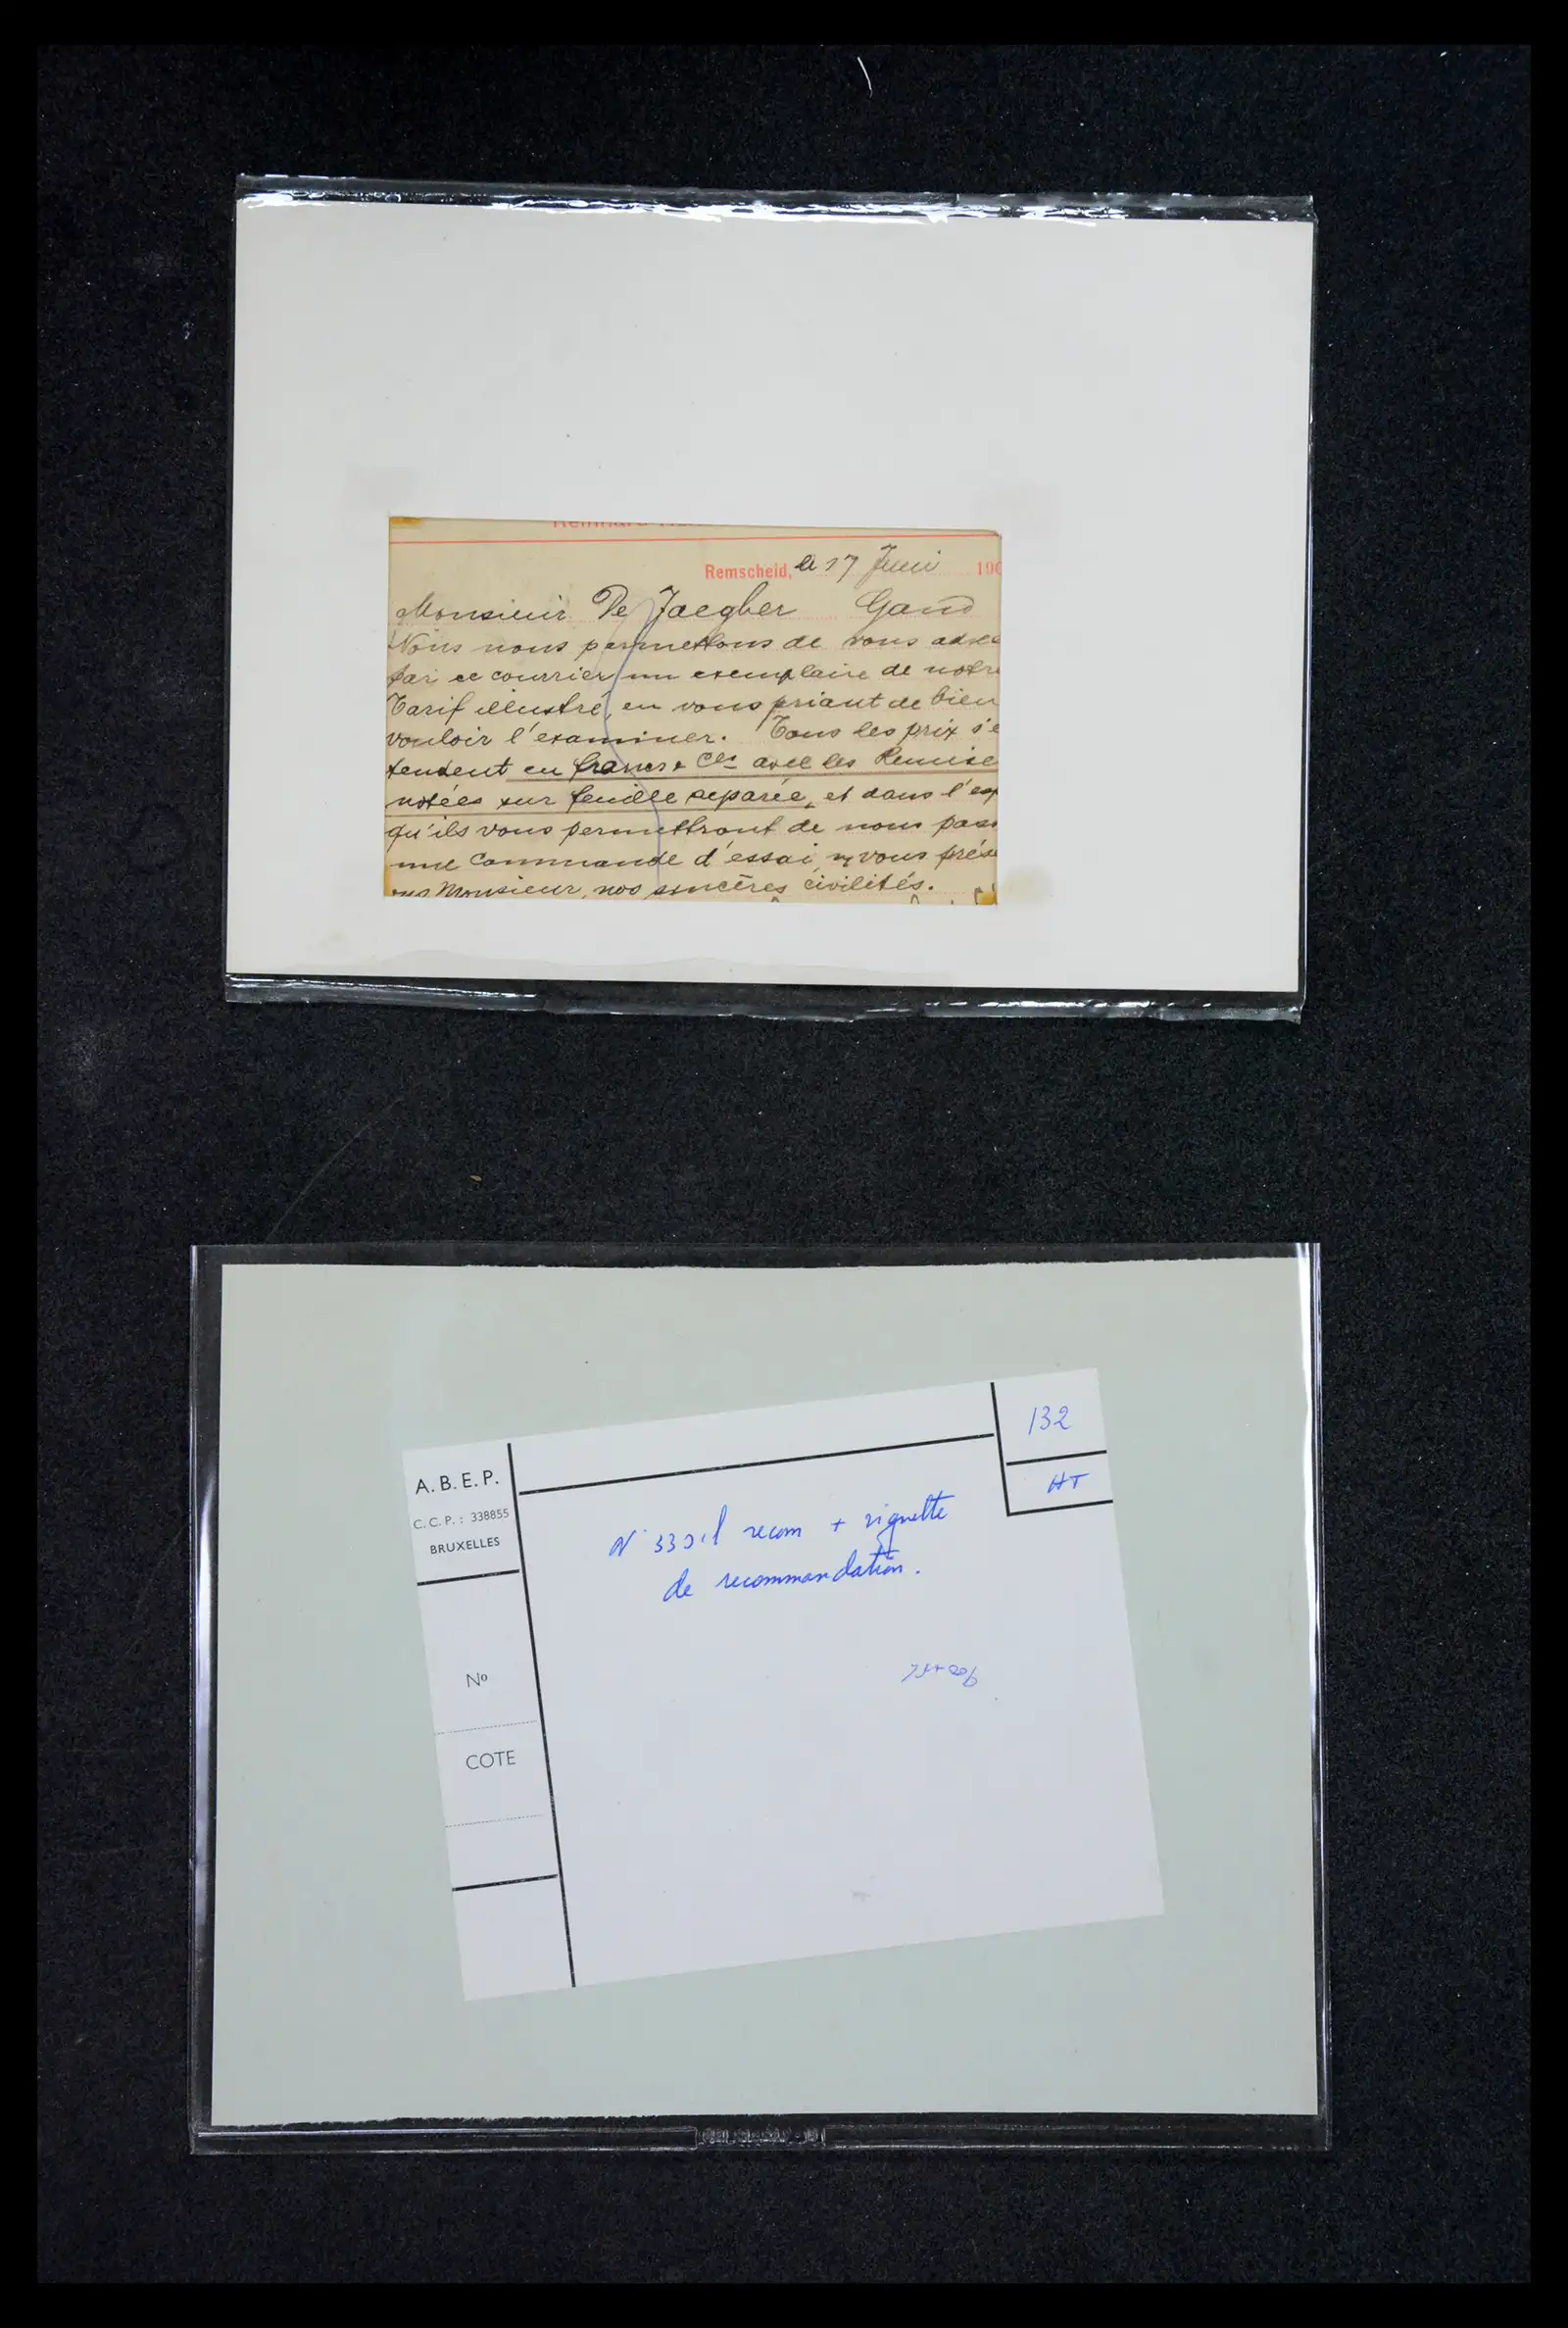 Remscheid, le 17 Juni 190
Monsieur De Jaegher Gand
Nous nous permettons de vous adre
par ce courrier un exemplaire de notre
Tarif illustré, en vous priant de bien
vouloir l'examiner. Tous les prix s'e
tendent en francs & Cts avec les Remise
notées sur feuille separée, et dans l'esp
qu'ils vous permettront de nous pass
une commande d'essai, vous prés
ons Monsieur, nos sincères civilités.
132
A.B.E.P.
HT
C.C.P.: 338855
BRUXELLES
recom + vignette
de recommandation.
No
COTE